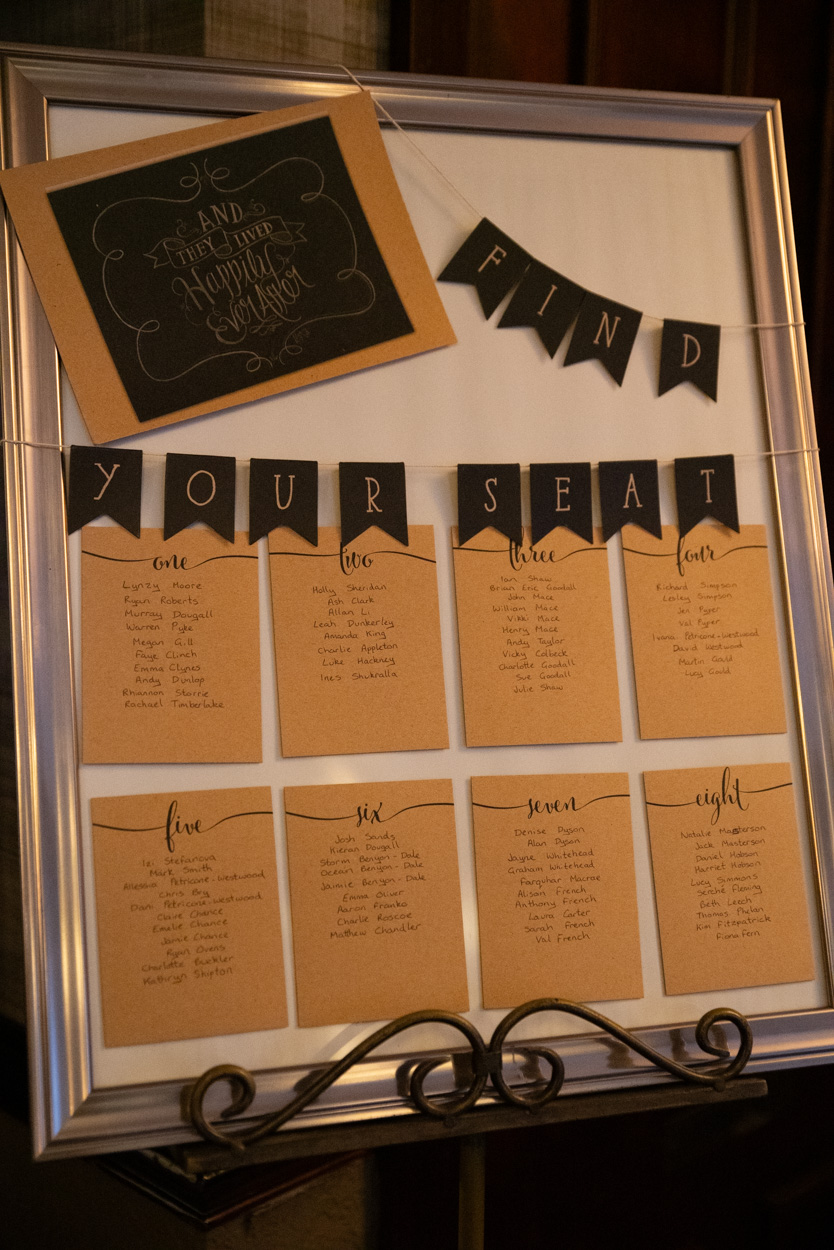 AND
THEY LIVED
Happily
Ever After
FIND
YOUR SEAT
one
Lynzy Moore
Ryan Roberts
Murray Dougall
Warren Pyke
Megan Gill
Faye Clinch
Emma Clynes
Andy Dunlop
Rhiannon Storrie
Rachael Timberlake
two
Holly Sheridan
Ash Clark
Allan Li
Leah Dunkerley
Amanda King
Charlie Appleton
Luke Hackney
Ines Shukralla
three
Ian Shaw
Brian Eric Goodall
John Mace
William Mace
Vikki Mace
Henry Mace
Andy Taylor
Vicky Colbeck
Charlotte Goodall
Sue Goodall
Julie Shaw
four
Richard Simpson
Lesley Simpson
Jen Pyzer
Val Pyzer
Ivana Petricone-Westwood
David Westwood
Martin Gould
Lucy Gould
five
Stefanova
Mark Smith
Allessia Petricone-Westwood
Chris Bry
Dani Petricone-Westwood
Claire Chance
Emalie Chance
Jamie Chance
Ryan Ovens
Charlotte Buckler
Kathryn Shipton
six
Josh Sands
Kieran Dougall
Storm Benyon-Dale
Ocean Benyon-Dale
Jaimie Benyon-Dale
Emma Oliver
Aaron Franks
Charlie Roscoe
Matthew Chandler
seven
Denise Dyson
Alan Dyson
Jayne Whitehead
Graham Whitehead
Farquhar Macrae
Alison French
Anthony French
Laura Carter
Sarah French
Val French
eight
Natalie Masterson
Jack Masterson
Daniel Hobson
Harriet Hobson
Lucy Simmons
Serché Fleming
Beth Leech
Thomas Phelan
Kim Fitzpatrick
Fiona Fern